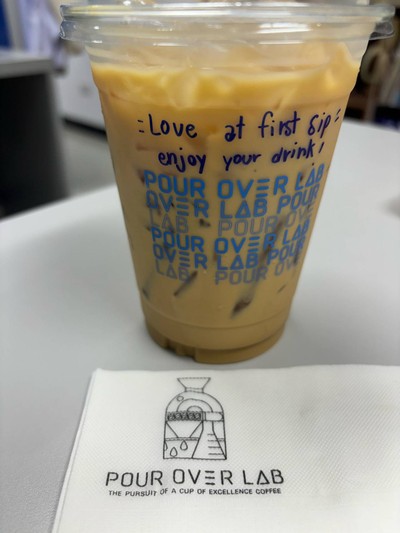 =Love at first sip=
enjoy your drink!
POUR OVER LAB
OVER LAB POUR
LAB POUR OVE
POUR OVER LAB
OVER LAB POUR
LAB POUR OVE
POUR OVER LAB
THE PURSUIT OF A CUP OF EXCELLENCE COFFEE